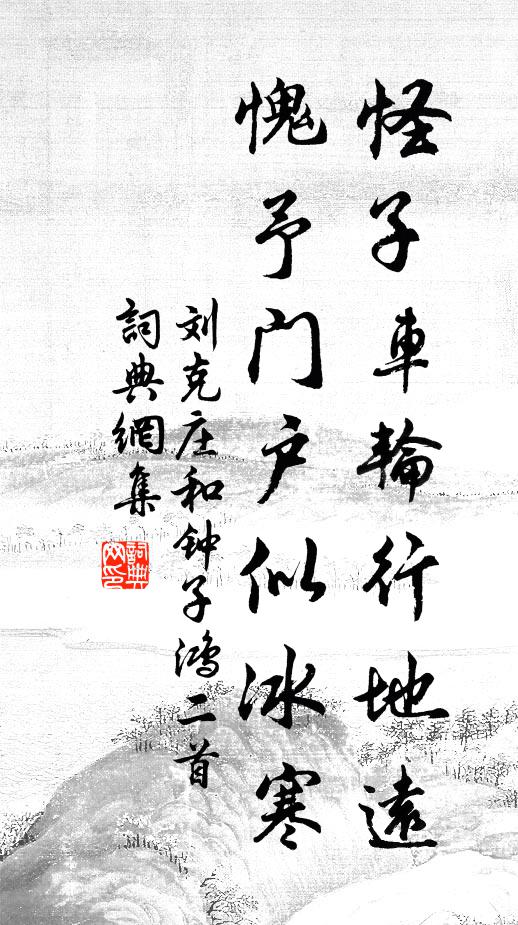 怪子車輪行地遠
愧予門户似冰寒
刘克庄和钟子鸿二首
詞典網集
詞典网印